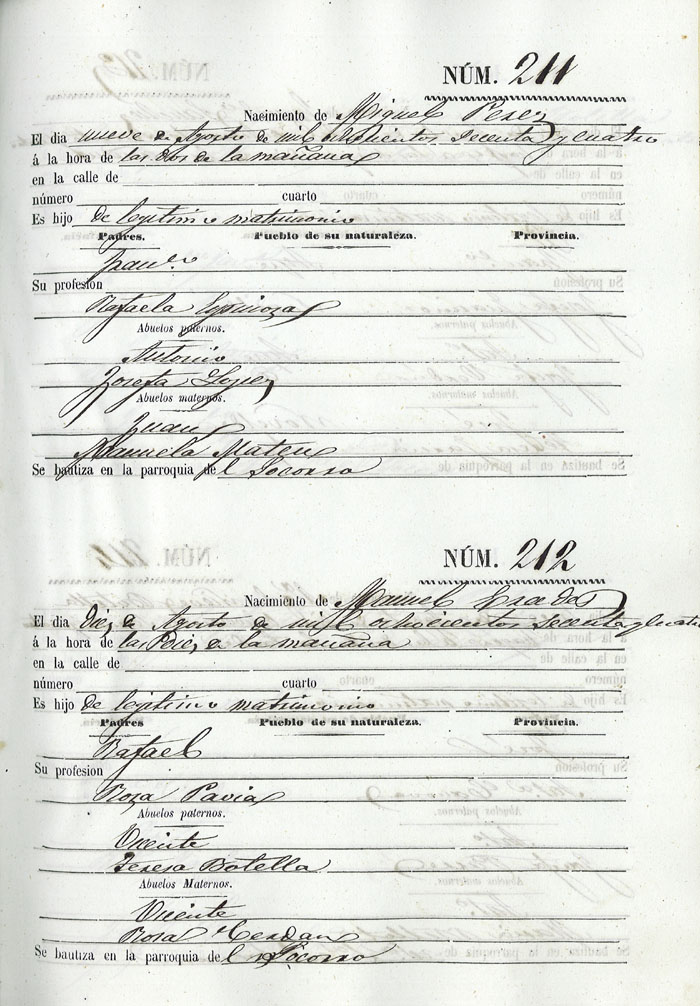 NÚM. 211
Nacimiento de Miguel Perez
El dia nueve de Agosto de mil ochocientos secenta y cuatro
á la hora de las dos de la mañana
en la calle de
número cuarto
Es hijo de legitimo matrimonio
Padres. Pueblo de su naturaleza. Provincia.
Su profesion
Rafaela Espinoza
Abuelos paternos.
Antonio
Josefa Lopez
Abuelos maternos.
Juan
Manuela Mateu
Se bautiza en la parroquia del Socorro
NÚM. 212
Nacimiento de Manuel
El dia diez de Agosto de mil ochocientos secenta y cuatro
á la hora de las Diez de la mañana
en la calle de
número cuarto
Es hijo de legitimo matrimonio
Padres Pueblo de su naturaleza. Provincia.
Rafael
Su profesion
Roza Pavia
Abuelos paternos.
Vicente
Teresa Botella
Abuelos Maternos.
Vicente
Rosa Cerdan
Se bautiza en la parroquia del Socorro